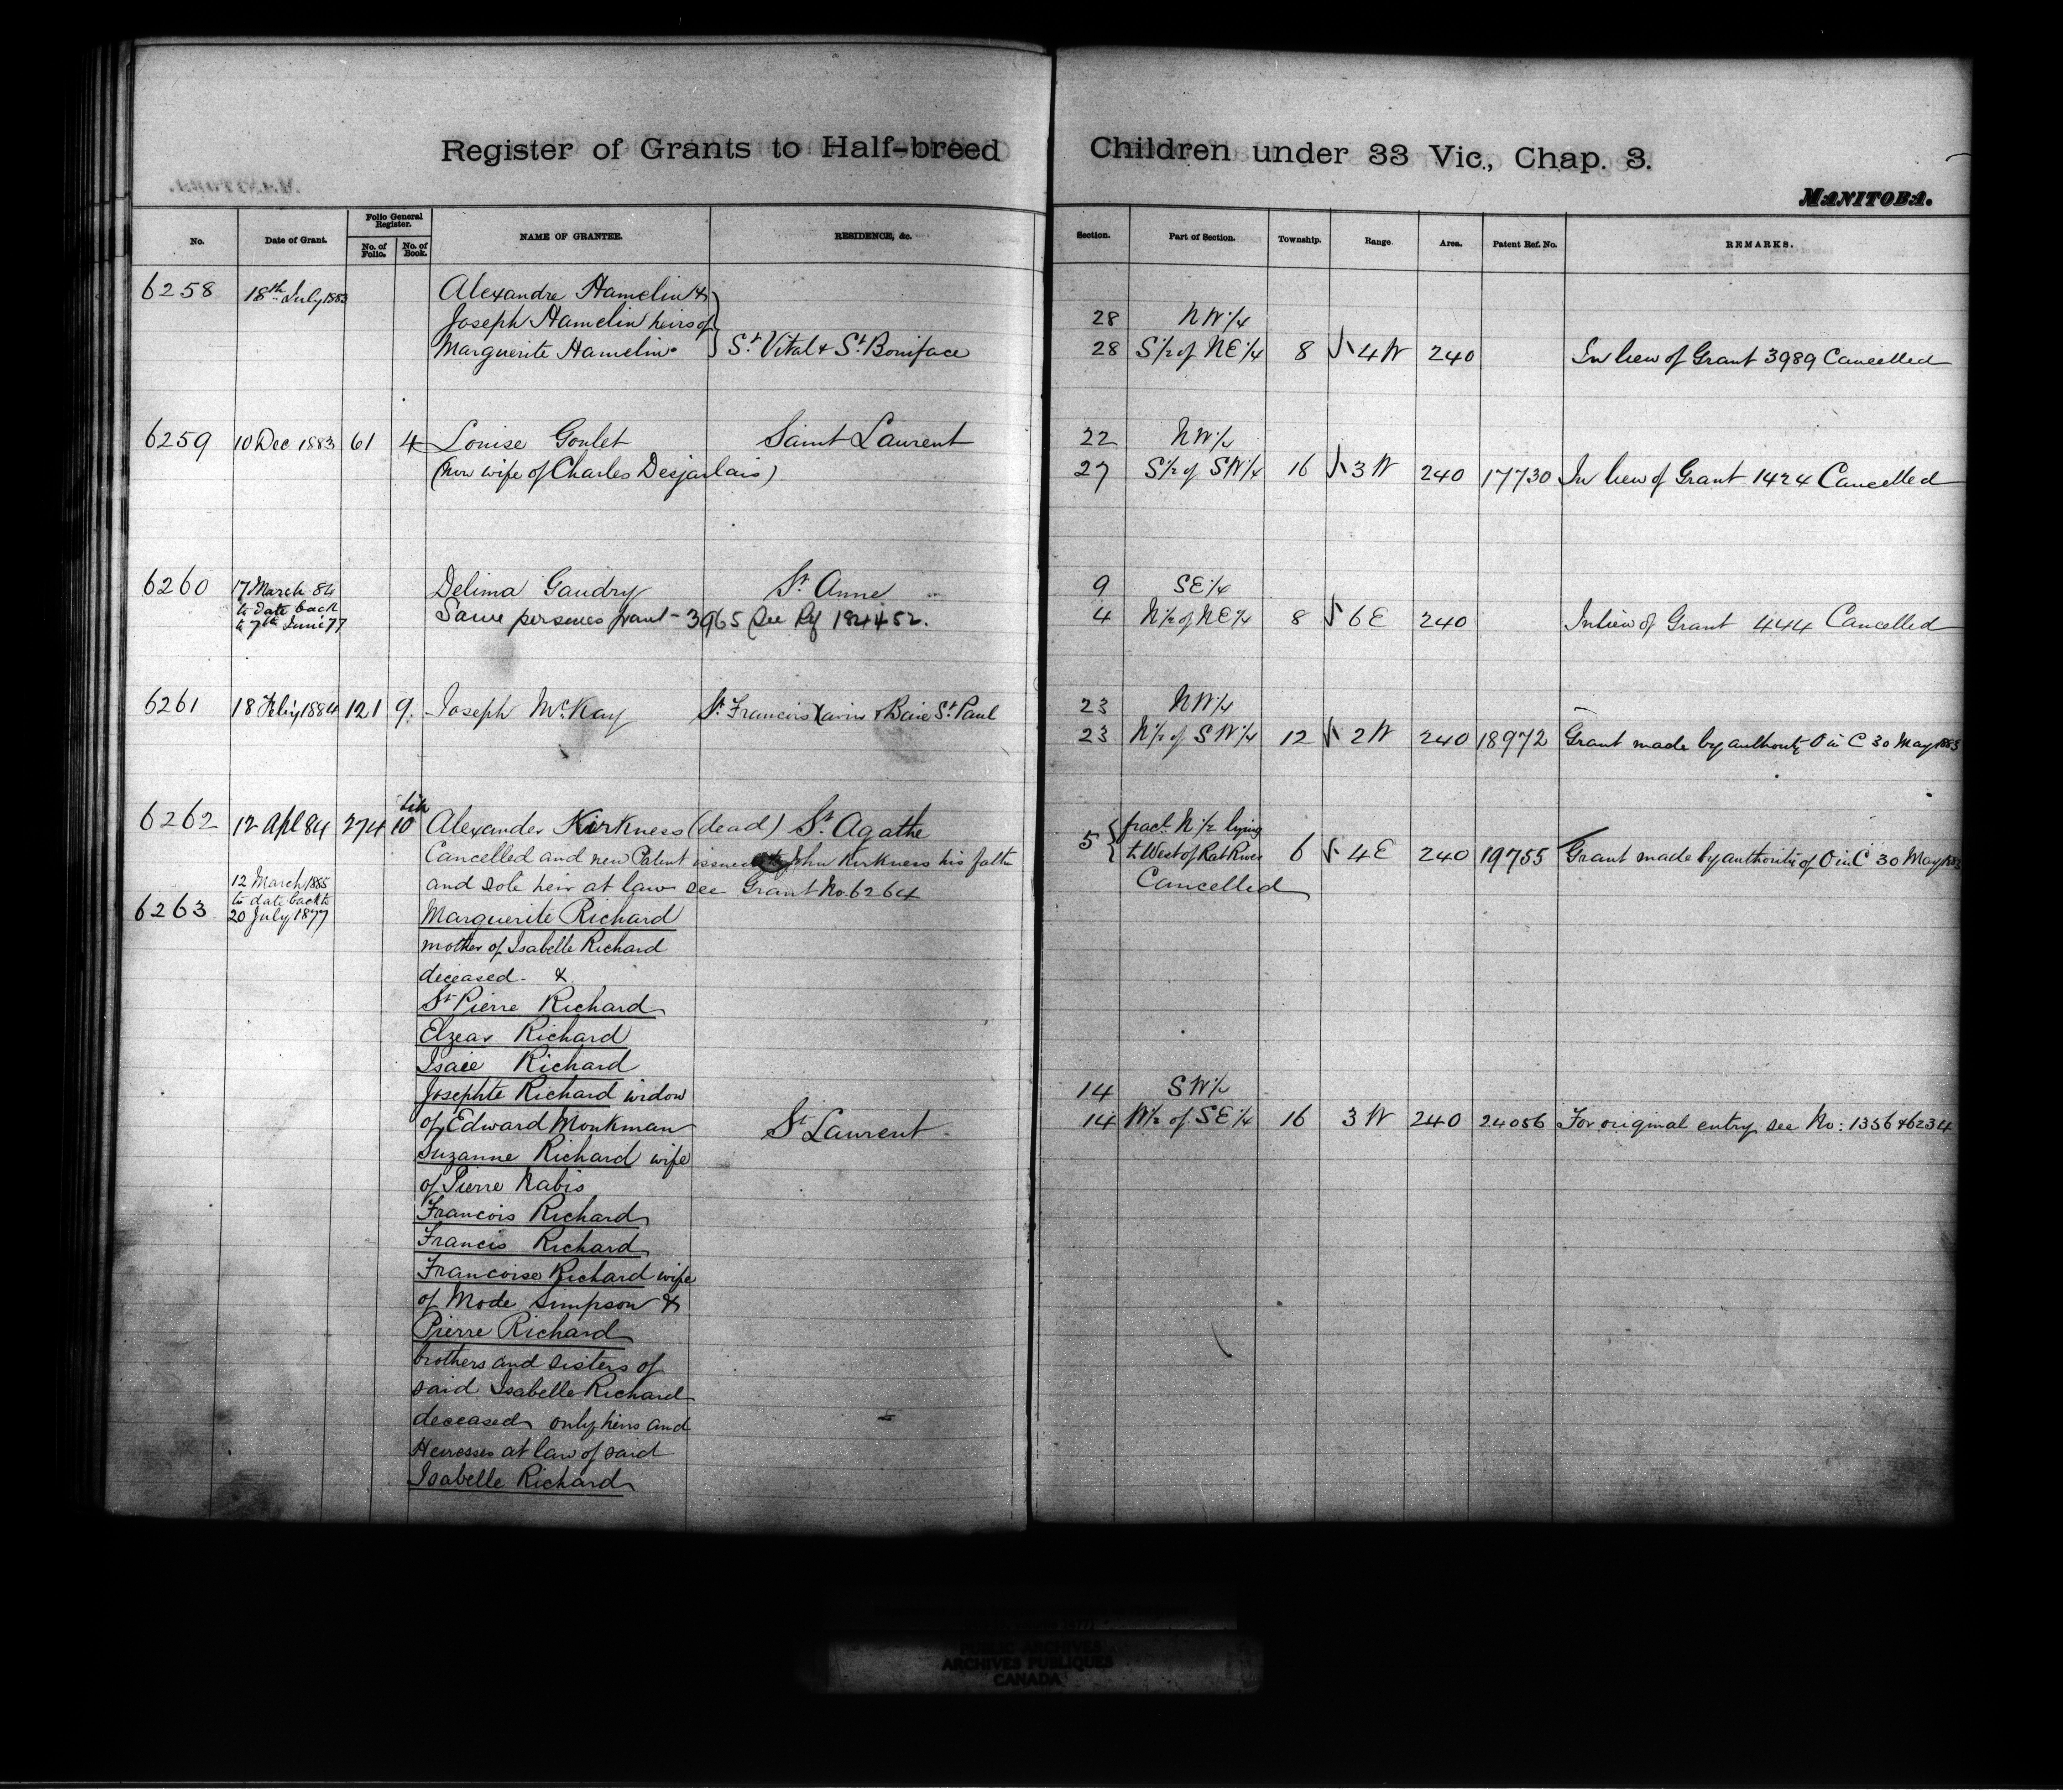 Register of Grants to Half-breed Children under 33 Vic., Chap. 3.
MANITOBA.
No. Date of Grant. Folio General Register. No. of Folio. No. of Book. NAME OF GRANTEE. RESIDENCE, &c. Section. Part of Section. Township. Range. Area. Patent Ref. No. REMARKS.
6258 18th July 1883 Alexandre Hamelin &
Joseph Hamelin heirs of 28 NW 1/4
Marguerite Hamelin St Vital & St Boniface 28 S 1/2 of NE 1/4 8 4 W 240 In lieu of Grant 3989 Cancelled
6259 10 Dec 1883 61 4 Louise Goulet Saint Laurent 22 NW 1/4
(now wife of Charles Desjarlais) 27 S 1/2 of SW 1/4 16 3 W 240 17730 In lieu of Grant 1424 Cancelled
6260 17 March 84 Delima Gaudry St. Anne 9 SE 1/4
to date back
to 7th June 77 Same persones grant - 3965 See Rf 184452. 4 N 1/2 of NE 1/4 8 6 E 240 In lieu of Grant 444 Cancelled
6261 18 Feby 1884 121 9. Joseph McKay St. Francois Xavier & Baie St. Paul 23 NW 1/4
23 N 1/2 of SW 1/4 12 2 W 240 18972 Grant made by authority O in C 30 May 1883
6262 12 Apl 84 274 10 Alexander Kirkness (dead) St. Agathe 5 fracl. N 1/2 lying
to West of Rat River 6 4 E 240 19755 Grant made by authority of O in C 30 May 1883
Cancelled and new Patent issued to John Kirkness his father
and sole heir at law see Grant No. 6264 Cancelled
12 March 1885
to date back to
6263 20 July 1877 Marguerite Richard
mother of Isabelle Richard
deceased &
St Pierre Richard
Elzear Richard
Isaie Richard
Josephte Richard widow 14 SW 1/4
of Edward Monkman St Laurent 14 W 1/2 of SE 1/4 16 3 W 240 24056 For original entry see No: 1356 & 6234
Suzanne Richard wife
of Pierre Nabis
Francois Richard
Francis Richard
Francoise Richard wife
of Mode Simpson &
Pierre Richard
brothers and sisters of
said Isabelle Richard
deceased only heirs and
Heiresses at law of said
Isabelle Richard
PUBLIC ARCHIVES
ARCHIVES PUBLIQUES
CANADA